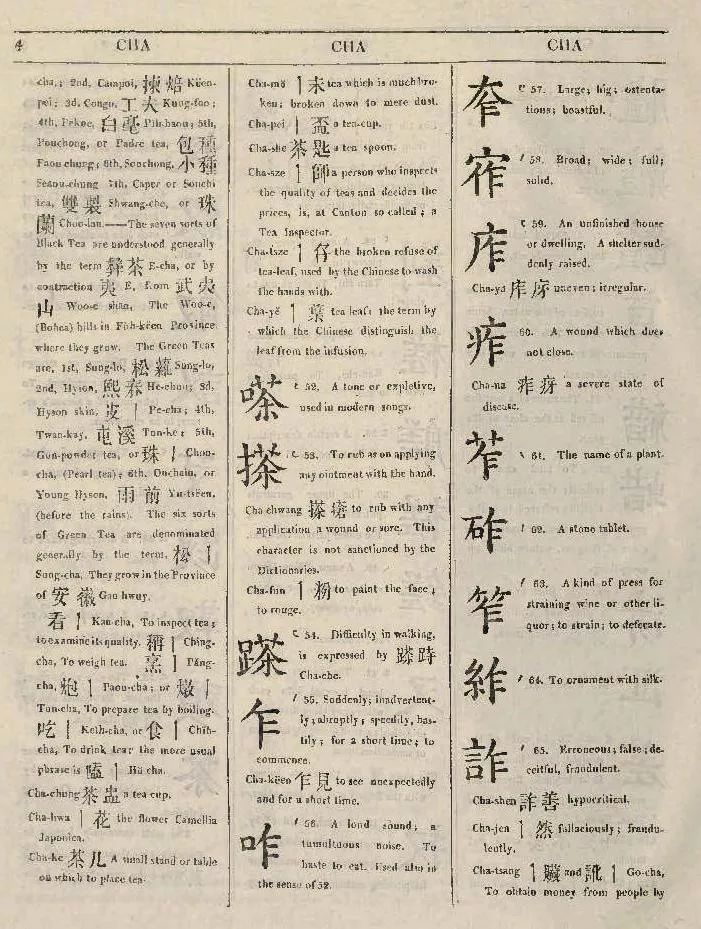 4 CHA CHA CHA
cha,; 2nd, Campoi, 揀焙 Këen-
pei; 3d, Congo, 工夫 Kung-foo;
4th, Pekoe, 白毫 Pih-haou; 5th,
Pouchong, or Padre tea, 包種
Paou chung; 6th, Souchong, 小種
Seaou-chung 7th, Caper or Sonchi
tea, 雙製 Shwang-che, or 珠
蘭 Choo-lan.——The seven sorts of
Black Tea are understood generally
by the term 彝茶 E-cha, or by
contraction 夷 E, from 武夷
山 Woo-e shan, The Woo-e,
(Bohea) hills in Füh-këen Province
where they grow. The Green Teas
are, 1st, Sung-lo, 松蘿 Sung-lo;
2nd, Hyson, 熙春 He-chun; 3d,
Hyson skin, 皮 | Pe-cha; 4th,
Twan-kay, 屯溪 Tun-ke; 5th,
Gun-powder tea, or 珠 | Choo-
cha, (Pearl tea); 6th, Ouchain, or
Young Hyson, 雨前 Yu-tsëen,
(before the rains). The six sorts
of Green Tea are denominated
generally by the term, 松 |
Sung-cha. They grow in the Province
of 安徽 Gan hwuy.
看 | Kan-cha, To inspect tea;
to examine its quality. 稱 | Ching-
cha, To weigh tea. 烹 | Păng-
cha, 炮 | Paou-cha; or 燉 |
Tun-cha, To prepare tea by boiling.
吃 | Keih-cha, or 食 | Chih-
cha, To drink tea: the more usual
phrase is 嗑 | Hă cha.
Cha-chung 茶盅 a tea cup.
Cha-hwa | 花 the flower Camellia
Japonica.
Cha-ke 茶几 A small stand or table
on which to place tea.
Cha-mŏ | 末 tea which is much bro-
ken; broken down to mere dust.
Cha-pei | 盃 a tea-cup.
Cha-she 茶匙 a tea spoon.
Cha-sze | 師 a person who inspects
the quality of teas and decides the
prices, is, at Canton so called; a
Tea Inspector.
Cha-tsze | 仔 the broken refuse of
tea-leaf, used by the Chinese to wash
the hands with.
Cha-yĕ | 葉 tea leaf; the term by
which the Chinese distinguish the
leaf from the infusion.
嗏 52. A tone or expletive,
used in modern songs.
搽 53. To rub as on applying
any ointment with the hand.
Cha-chwang 搽瘡 to rub with any
application a wound or sore. This
character is not sanctioned by the
Dictionaries.
Cha-fun | 粉 to paint the face;
to rouge.
蹅 54. Difficulty in walking,
is expressed by
Cha-che.
乍 55. Suddenly; inadvertent-
ly; abruptly; speedily, has-
tily; for a short time; to
commence.
Cha-këen 乍見 to see unexpectedly
and for a short time.
咋 56. A loud sound; a
tumultuous noise. To
haste to eat. Used also in
the sense of 52.
厏 57. Large; big; ostenta-
tious; boastful.
58. Broad; wide; full;
solid.
庌 59. An unfinished house
or dwelling. A shelter sud-
denly raised.
Cha-ya uneven; irregular.
痄 60. A wound which does
not close.
Cha-na a severe state of
disease.
苲 61. The name of a plant.
砟 62. A stone tablet.
笮 63. A kind of press for
straining wine or other li-
quor; to strain; to defecate.
64. To ornament with silk.
詐 65. Erroneous; false; de-
ceitful, fraudulent.
Cha-shen 詐善 hypocritical.
Cha-jen | 然 fallaciously; fraudu-
lently.
Cha-tsang | 贓 and 訛 | Go-cha,
To obtain money from people by